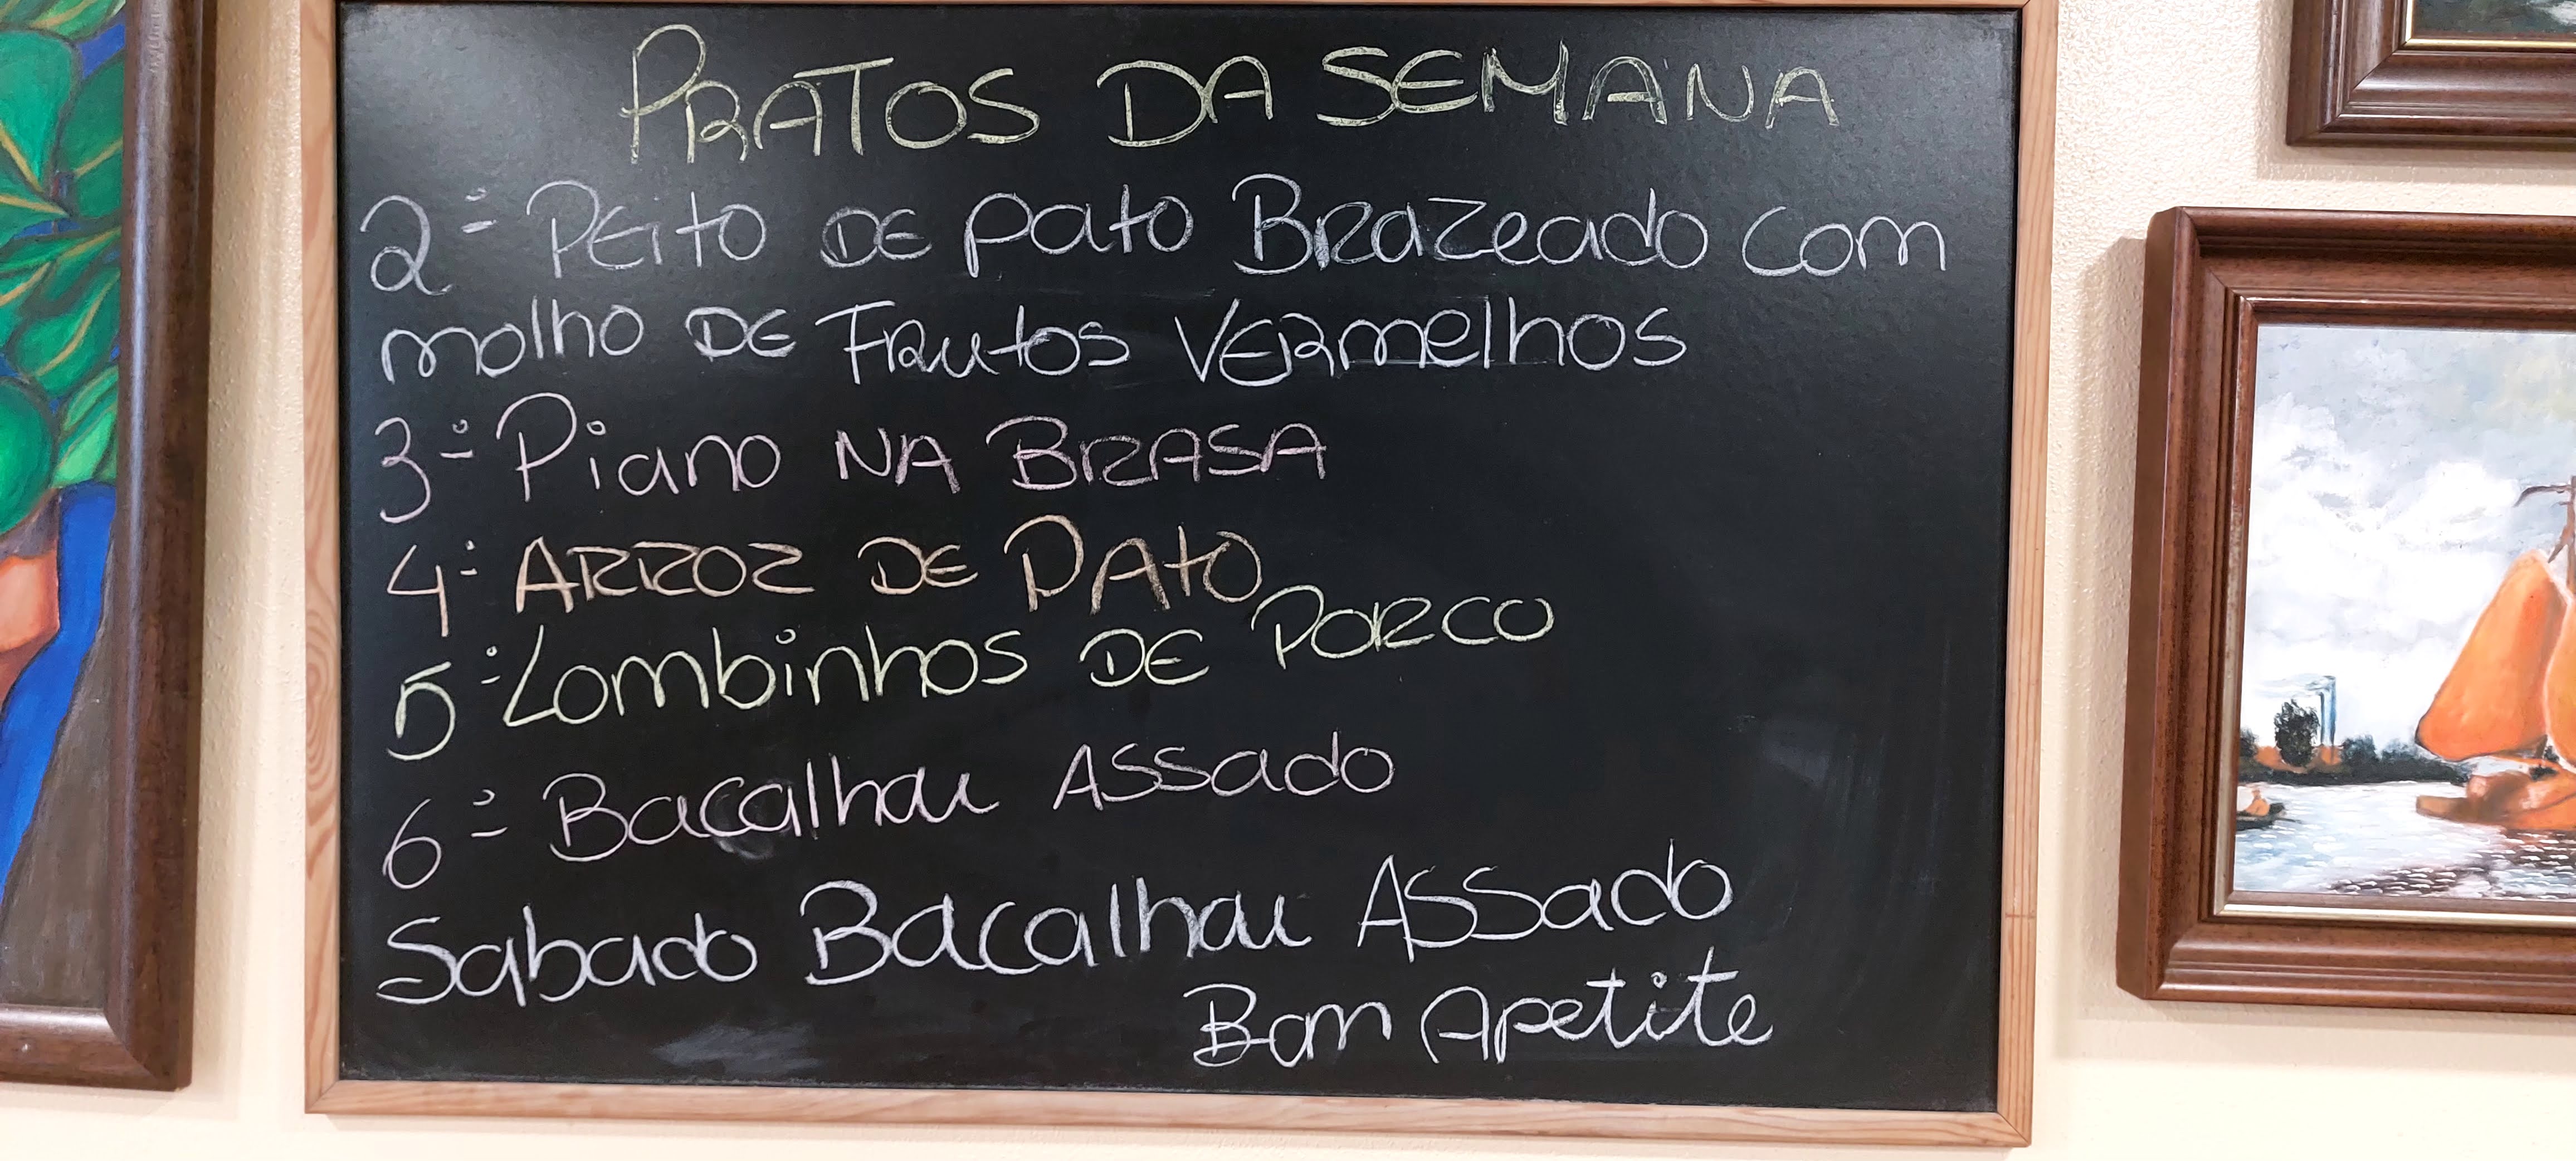 PRATOS DA SEMANA
2ª- PEito DE pato BRazeado com
molho DE FRutos VERmelhos
3ª- Piano NA BRASA
4ª- ARROZ DE PAtO
5ª- Lombinhos DE PORCO
6ª- Bacalhau Assado
Sabado Bacalhau Assado
Bom Apetite